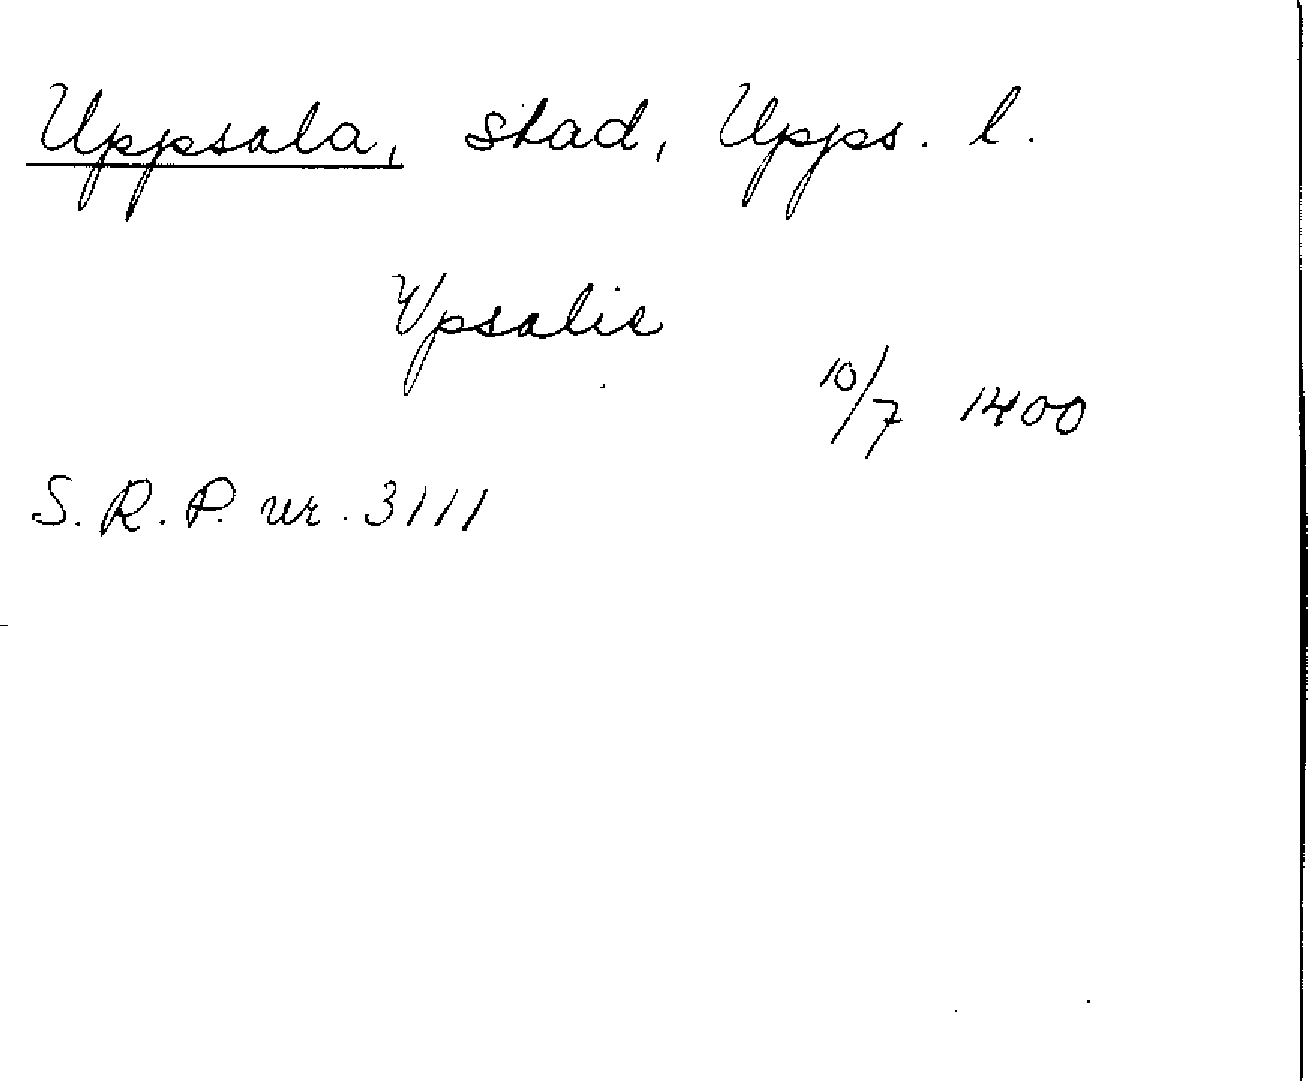 Uppsala, stad, Upps. l.
Vpsalie
10/7 1400
S. R. P. nr. 3111